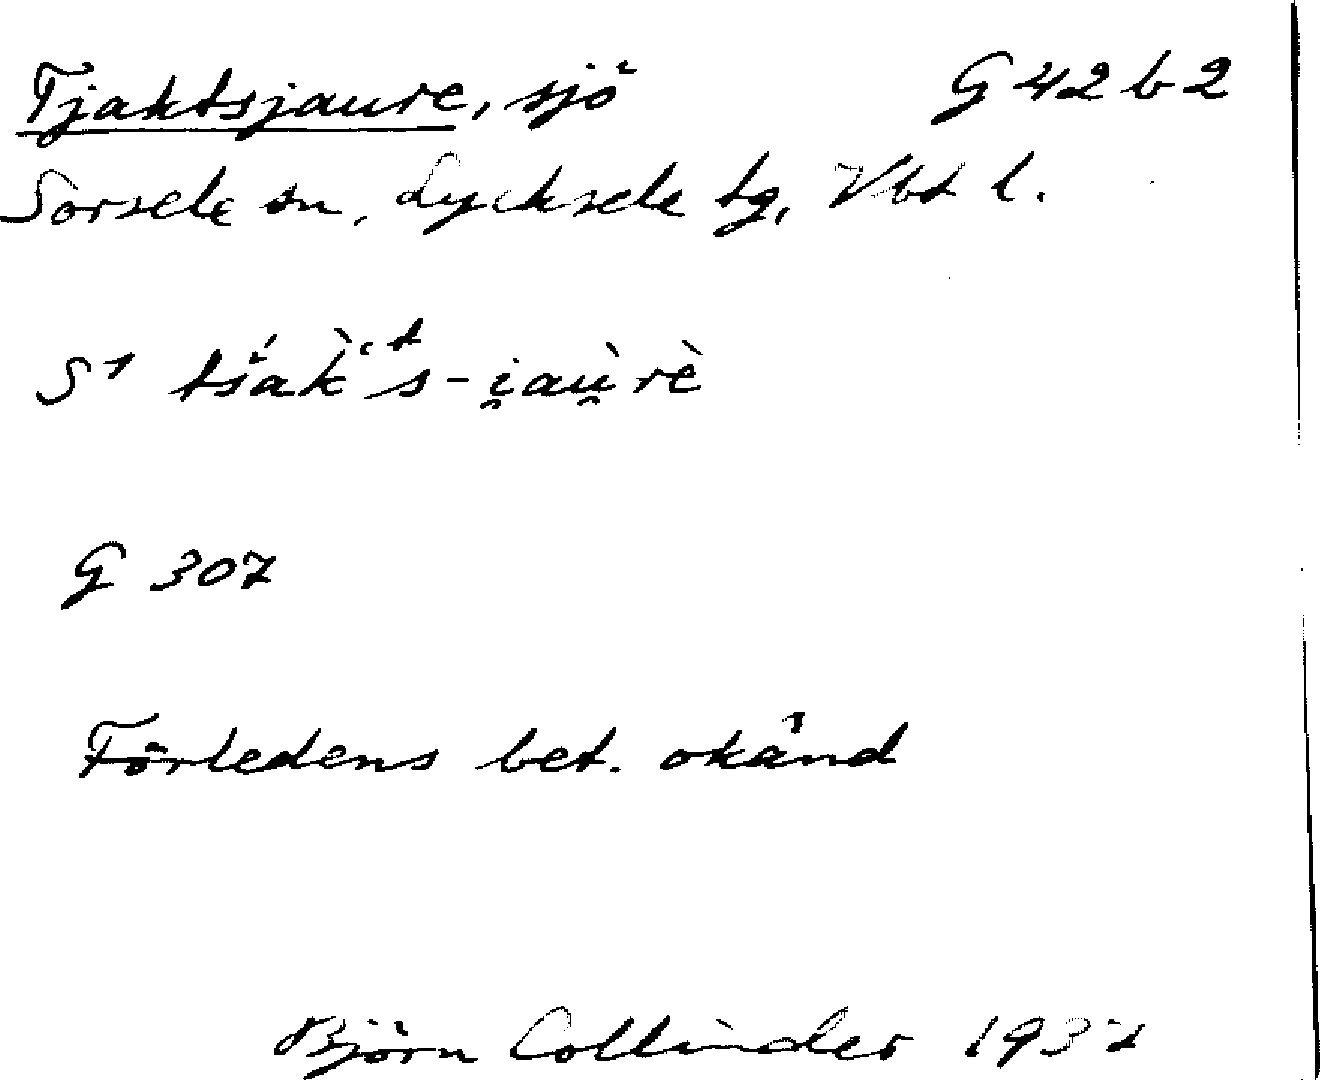 Tjaktsjaure, sjö G 42 b 2
Sorsele sn, Lycksele tg, Vbt l.
G 307
Förledens bet. okänd
Björn Collinder